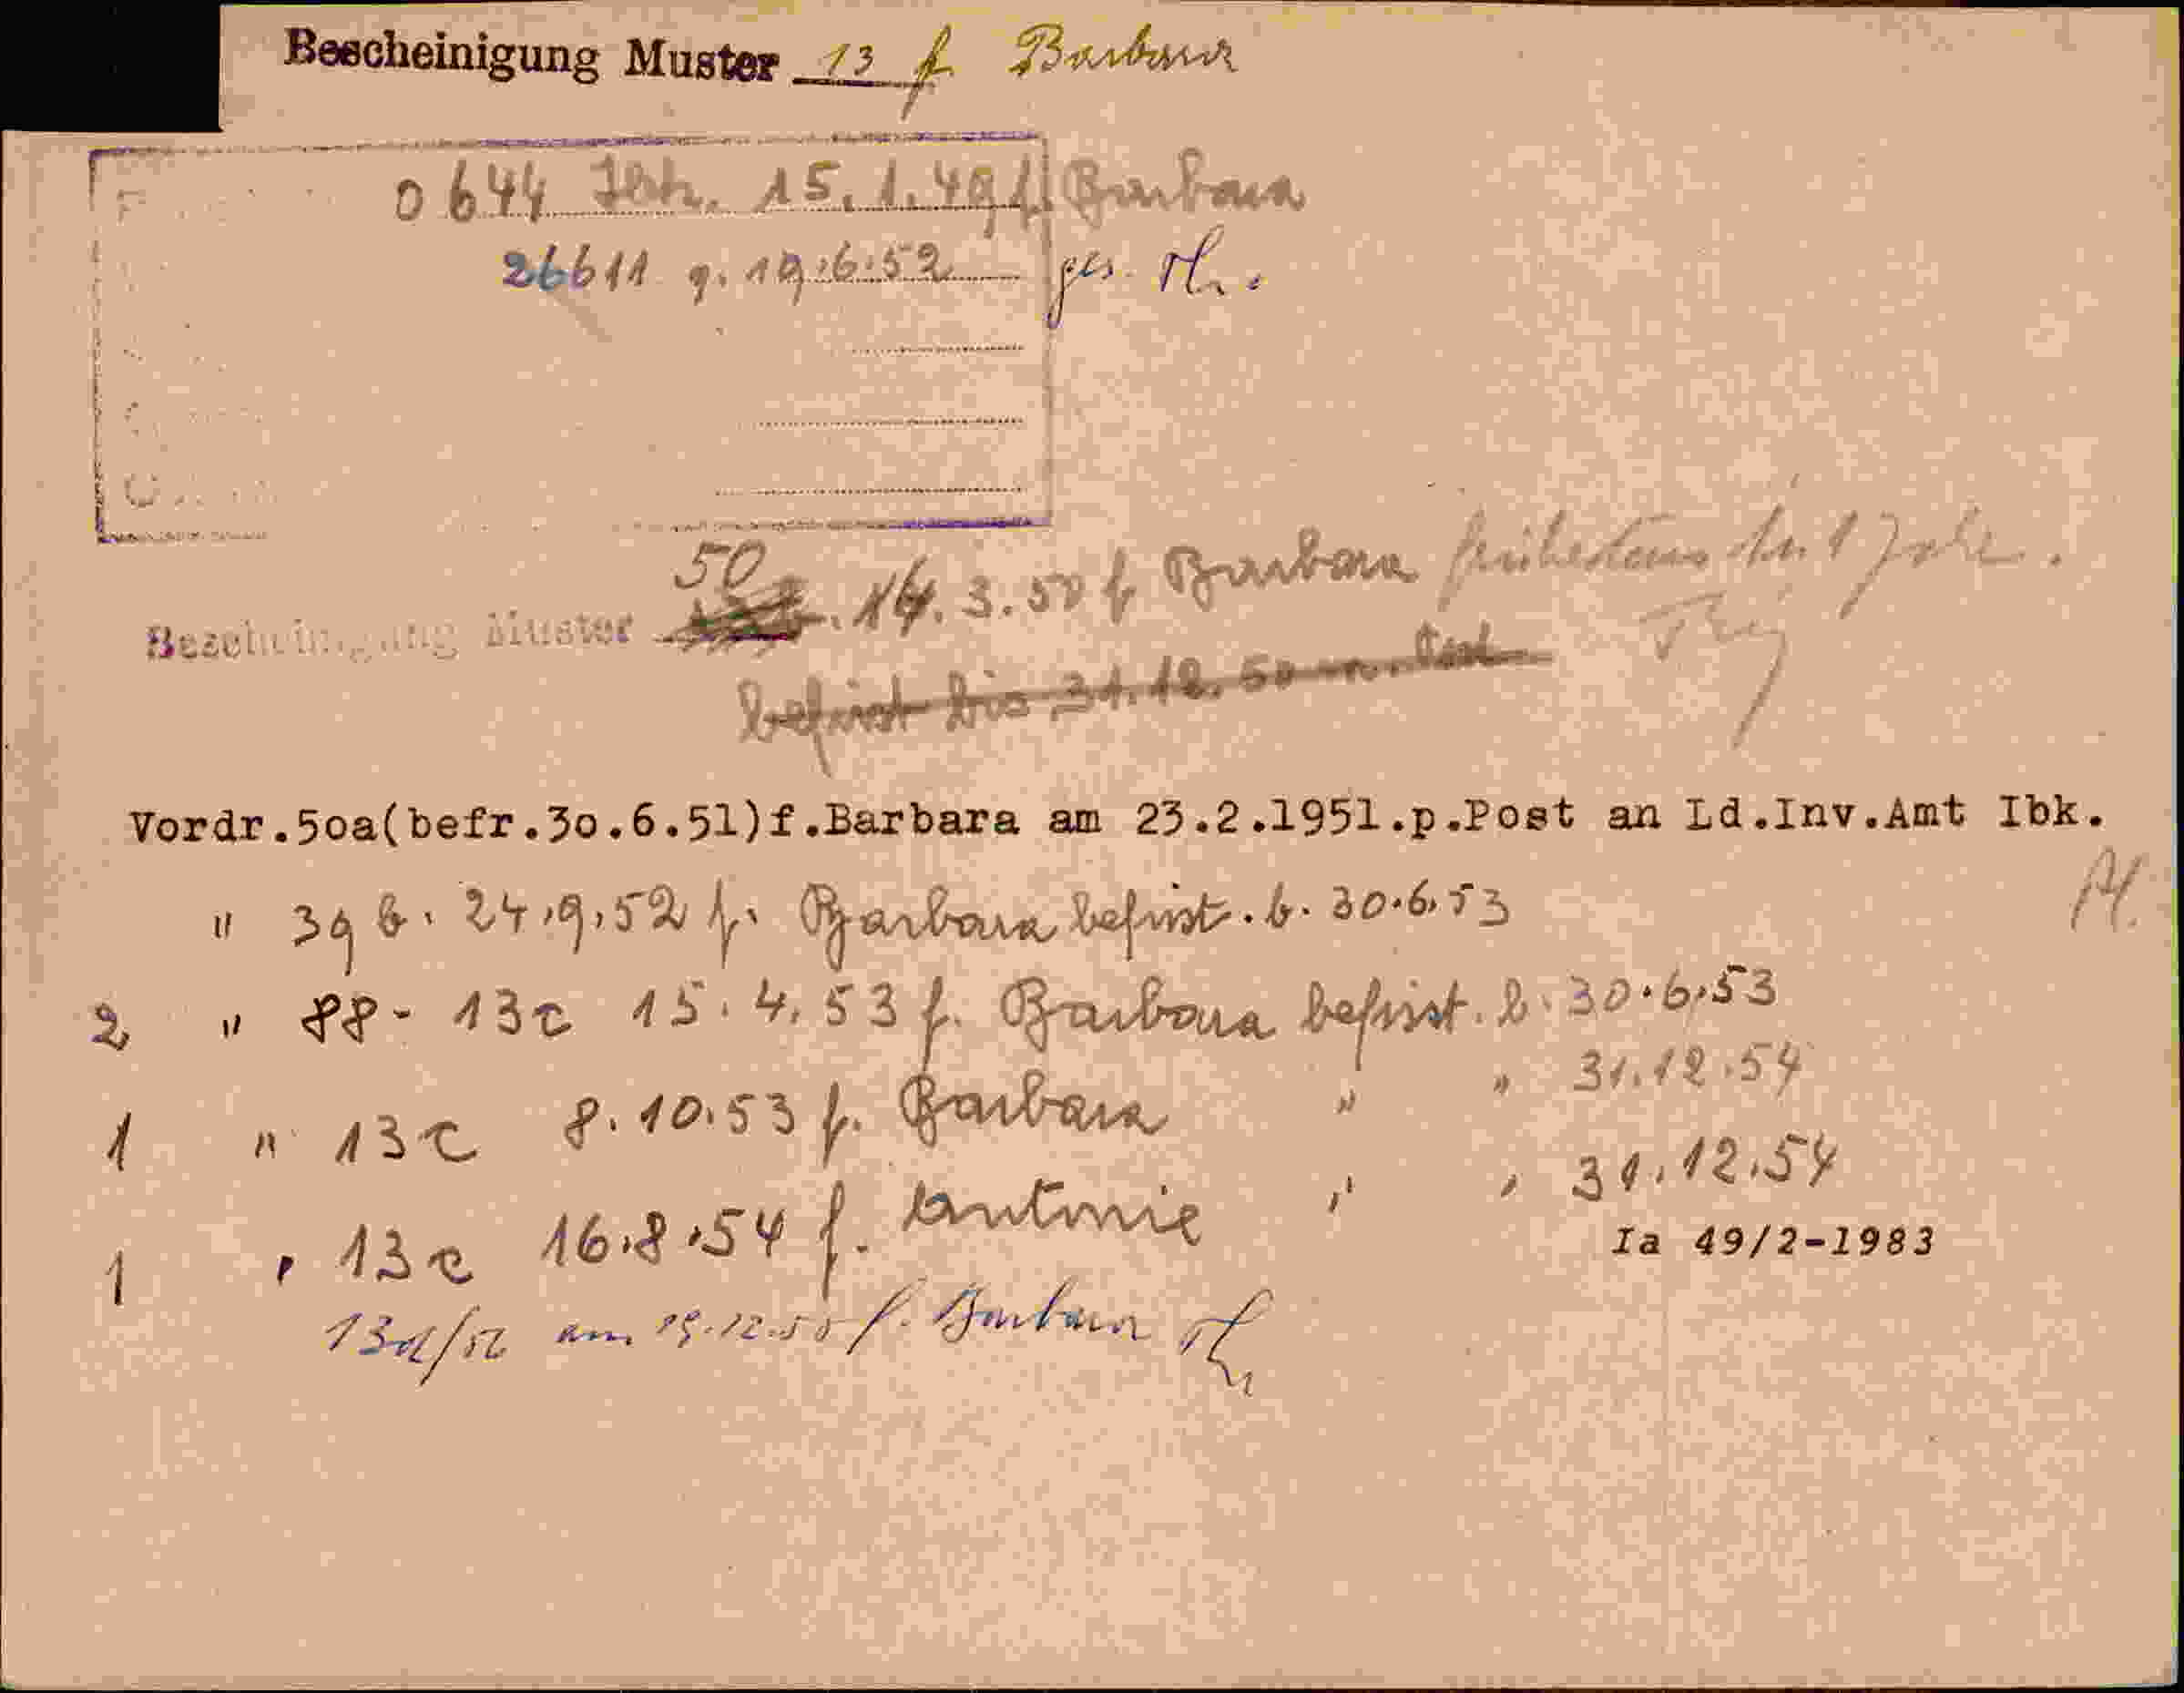 Bescheinigung Muster 13 f. Barbara
0644 15.1.49 f. Barbara
26611 g. 19.6.52 ges.
50
Bescheinigung Muster 14.3.50 f. Barbara frühestens in 1 Jahr.
befrist bis 31.12.50
Vordr.50a(befr.30.6.51)f.Barbara am 23.2.1951.p.Post an Ld.Inv.Amt Ibk.
" 39 b. 24.9.52 f. Barbara befrist. b. 30.6.53
2 " 88 - 13c 15.4.53 f. Barbara befrist. b. 30.6.53
1 " 13c 8.10.53 f. Barbara " " 31.12.54
1 " 13c 16.8.54 f. Antonie " " 31.12.54
Ia 49/2-1983
am f. Barbara